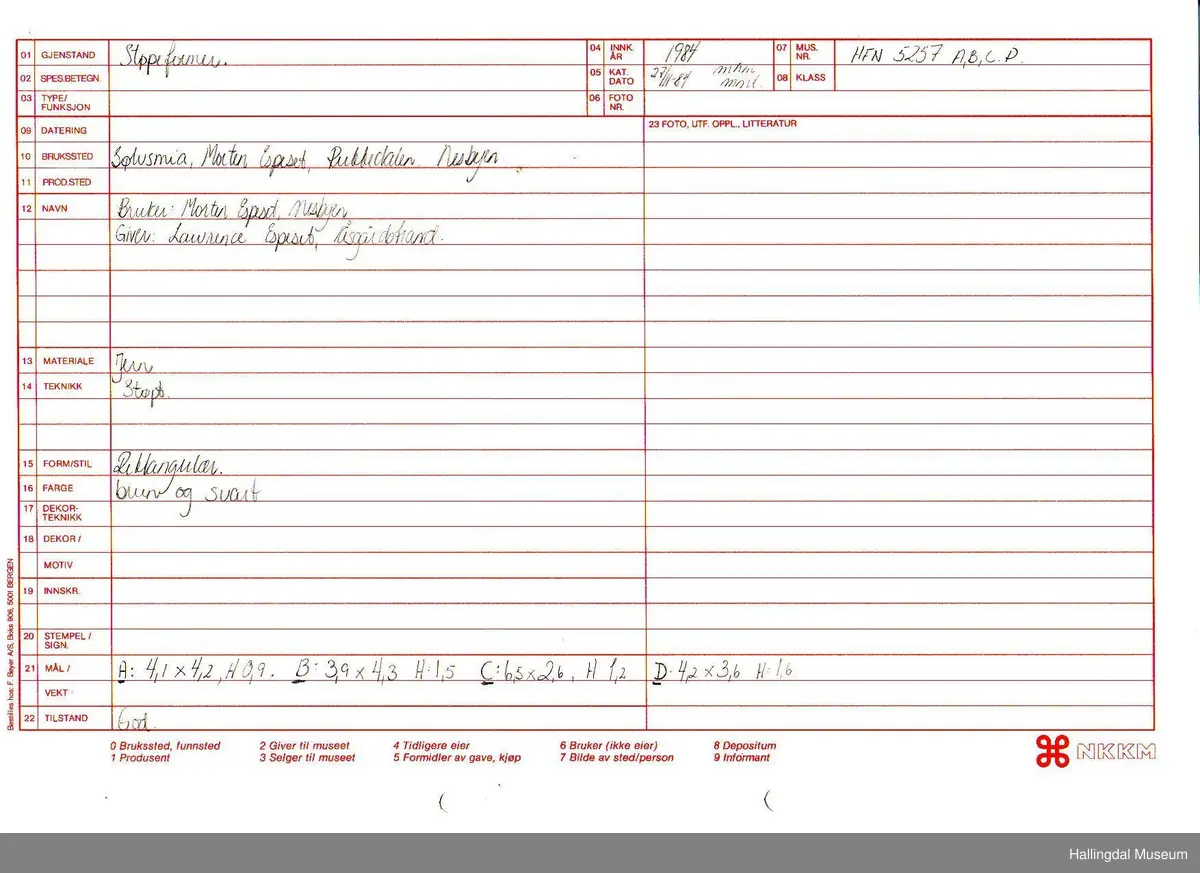 01 GJENSTAND Støpeformer. 04 INNK. ÅR 1984 07 MUS. NR. HFN 5257 A,B,C.D.
02 SPES.BETEGN. 05 KAT. DATO 27/11-84 08 KLASS
03 TYPE/ FUNKSJON 06 FOTO NR.
09 DATERING 23 FOTO, UTF. OPPL., LITTERATUR
10 BRUKSSTED Sølvsmia, Morten Espeset, Rukkedalen. Nesbyen
11 PROD.STED
12 NAVN Bruker: Morten Espeset, Nesbyen
Giver: Lawrence Espeset, Åsgårdstrand.
13 MATERIALE Jern
14 TEKNIKK Støpt.
15 FORM/STIL Rektangulær.
16 FARGE brun og svart
17 DEKOR- TEKNIKK
18 DEKOR /
MOTIV
19 INNSKR.
20 STEMPEL / SIGN.
21 MÅL / A: 4,1 x 4,2, H 0,9. B: 3,9 x 4,3 H: 1,5 C: 6,5 x 2,6, H 1,2 D: 4,2 x 3,6 H: 1,6
VEKT
22 TILSTAND God.
Bestilles hos: F. Beyer A/S, Boks 906, 5001 BERGEN
0 Brukssted, funnsted 2 Giver til museet 4 Tidligere eier 6 Bruker (ikke eier) 8 Depositum
1 Produsent 3 Selger til museet 5 Formidler av gave, kjøp 7 Bilde av sted/person 9 Informant
NKKM
Hallingdal Museum